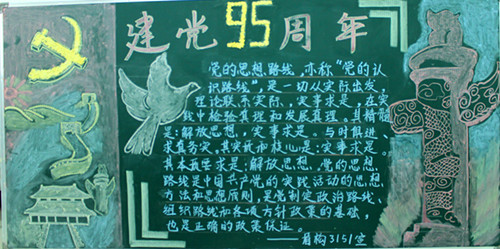 建党95周年
党的思想路线,亦称“党的认
识路线”,是一切从实际出发,
理论联系实际,实事求是,在实
践中检验真理和发展真理。其精髓
是:解放思想,实事求是。与时俱进、
求真务实,其实质和核心是:实事求是。
其本质要求是:解放思想。党的思想
路线是中国共产党的实践活动的思想
方法和思想原则,是党制定政治路线、
组织路线和各项方针政策的基础,
也是正确的政策保证。
3151宣